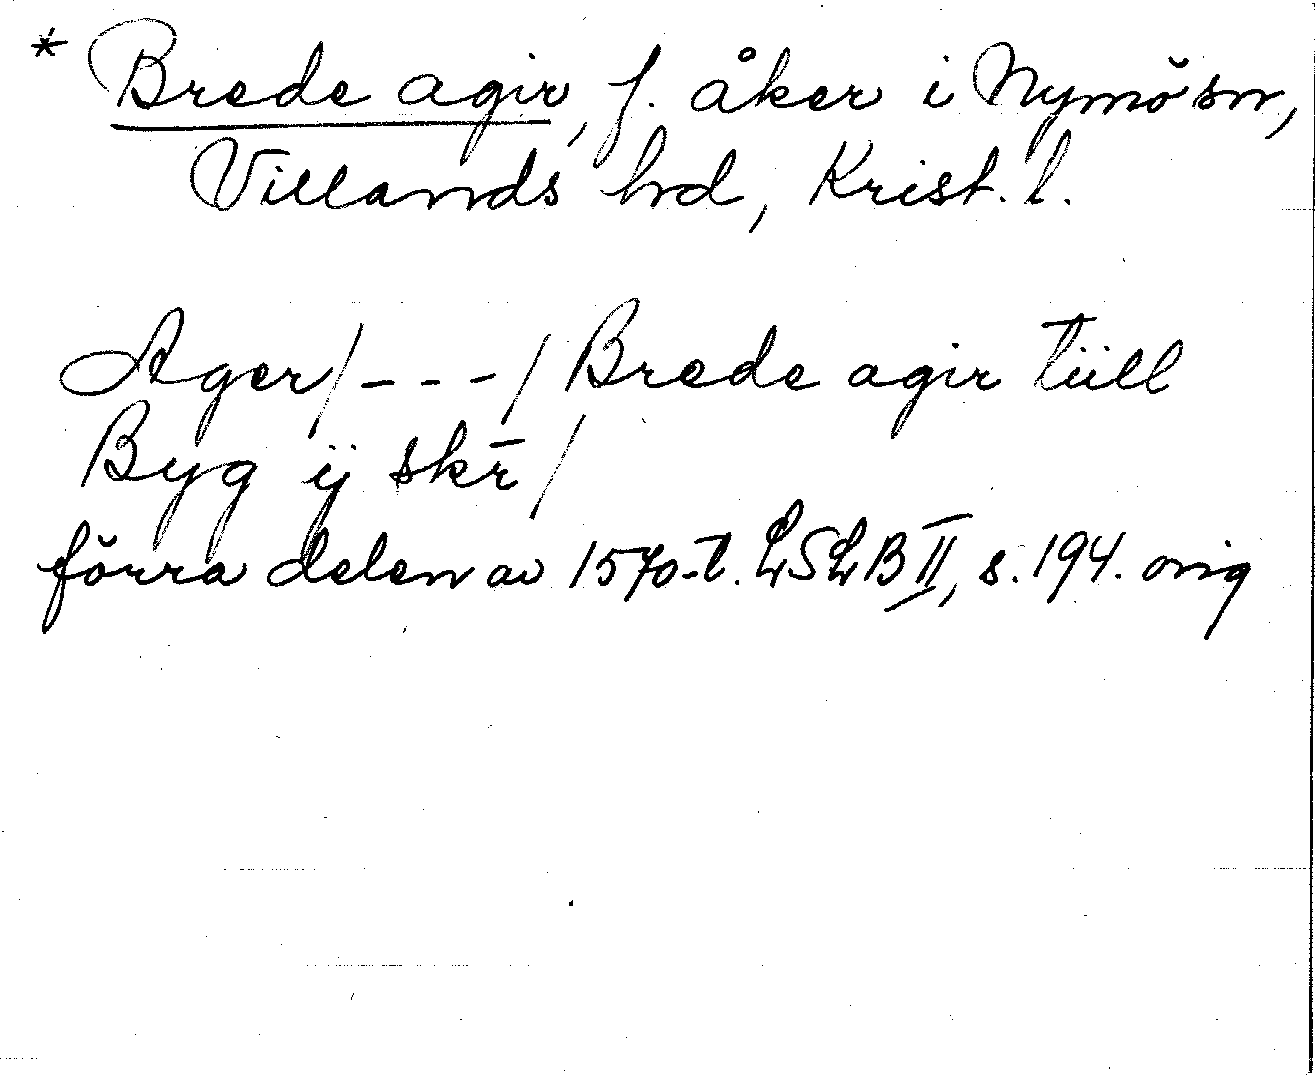 * Brede agir, f. åker i Nymö sn,
Villands hd, Krist. l.
Ager/---/Brede agir tüll
Byg ij skr̄/
förra delen av 1570-t. LSLB II, s. 194. orig